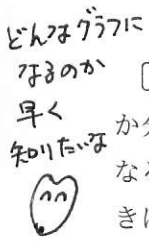 どんなグラフに
なるのか
早く
知りたいな
か
な
き